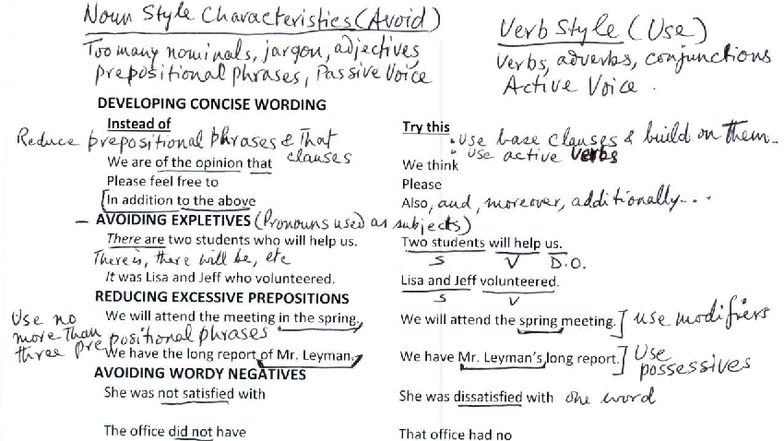 Noun Style Characteristics (Avoid)
Too many nominals, jargon, adjectives
prepositional phrases, Passive Voice
Verb Style (Use)
Verbs, adverbs, conjunctions
Active Voice.
DEVELOPING CONCISE WORDING
Instead of
Try this
Reduce prepositional phrases & That clauses
• Use base clauses & build on them..
• use active verbs
We are of the opinion that
We think
Please feel free to
Please
In addition to the above
Also, and, moreover, additionally...
– AVOIDING EXPLETIVES (Pronouns used as subjects)
There are two students who will help us.
Two students will help us.
There is, there will be, etc
S V D.O.
It was Lisa and Jeff who volunteered.
Lisa and Jeff volunteered.
S V
REDUCING EXCESSIVE PREPOSITIONS
Use no more than three prepositional phrases
We will attend the meeting in the spring.
We will attend the spring meeting. ] use modifiers
We have the long report of Mr. Leyman.
We have Mr. Leyman's long report. ] Use possessives
AVOIDING WORDY NEGATIVES
She was not satisfied with
She was dissatisfied with one word
The office did not have
That office had no